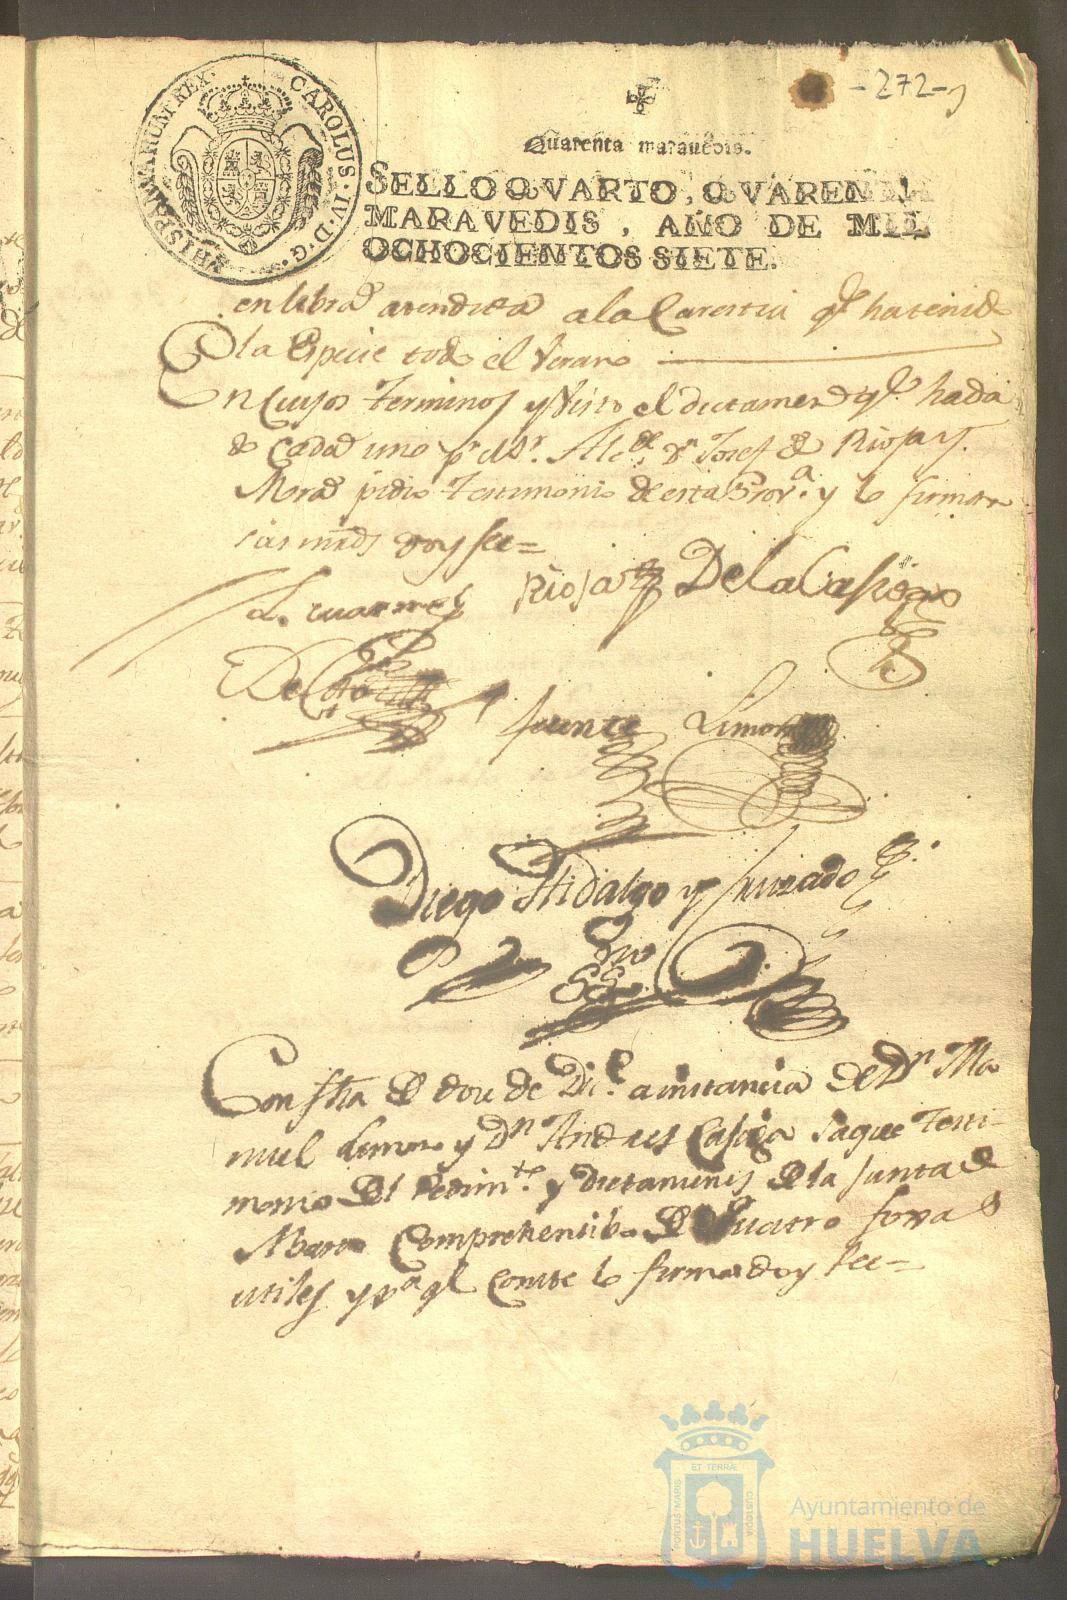 -272-
HISPANIARUM REX. CAROLUS·IV·D·G·
Quarenta maravedis.
SELLO QVARTO, QVARENTA
MARAVEDIS, AÑO DE MIL
OCHOCIENTOS SIETE.
en libra atendida a la Carestia qᵉ ha tenido
la Especie todo el Verano
En Cuyos terminos y Visto el dictamen qᵉ ha da
do Cada uno pʳ el Sʳ. Alcᵈᵉ Dⁿ Josef de Rioja y
Mora pidio Testimonio de esta Provᵃ. y lo firmaron
sus mrds doy fee=
Rioja De la Casiga
De
fuente Limon
Diego Hidalgo y Jurado
Con fha de doce de Dicᵉ. a instancia de Dⁿ Ma
nuel Limon y Dⁿ Andres Casiga saque Testi-
monio del Pedimᵗᵒ. y dictamenes de la Junta de
Abasto Comprehensibo de Quatro foxas
utiles y pᵃ qᵉ Conste lo firmo doy fee=
PORTUS MARIS ET TERRÆ CUSTODIA
Ayuntamiento de
HUELVA